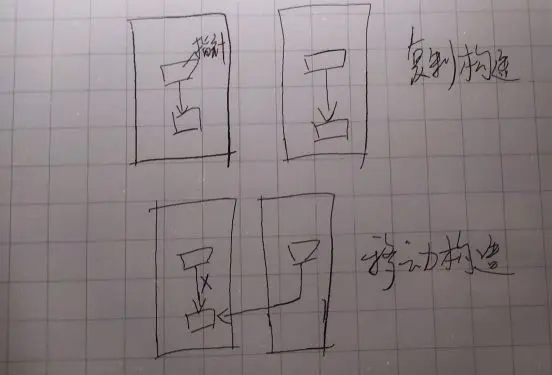 指针
复制构造
移动构造